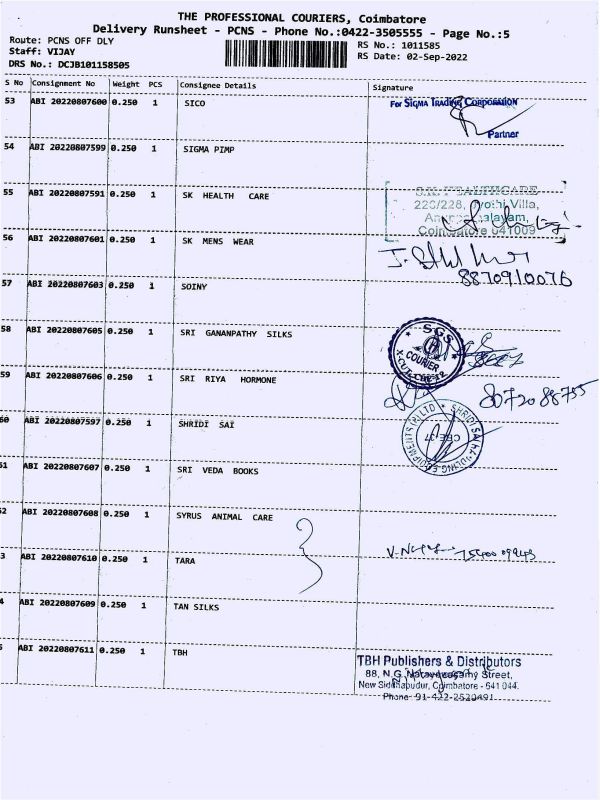 THE PROFESSIONAL COURIERS, Coimbatore
Delivery Runsheet - PCNS - Phone No.:0422-3505555 - Page No.:5
Route: PCNS OFF DLY
Staff: VIJAY
DRS No.: DCJB101158505
RS No.: 1011585
RS Date: 02-Sep-2022
S No Consignment No Weight PCS Consignee Details Signature
53 ABI 20220807600 0.250 1 SICO
For SIGMA TRADING CORPORATION
Partner
54 ABI 20220807599 0.250 1 SIGMA PIMP
55 ABI 20220807591 0.250 1 SK HEALTH CARE
S.K. HEALTHCARE
22C/228, Jyothi Villa,
Coimbatore 641009
56 ABI 20220807601 0.250 1 SK MENS WEAR
8870910076
57 ABI 20220807603 0.250 1 SOINY
58 ABI 20220807605 0.250 1 SRI GANANPATHY SILKS
SGS
COURIER
59 ABI 20220807606 0.250 1 SRI RIYA HORMONE
8072088755
60 ABI 20220807597 0.250 1 SHRIDI SAI
61 ABI 20220807607 0.250 1 SRI VEDA BOOKS
62 ABI 20220807608 0.250 1 SYRUS ANIMAL CARE
3 ABI 20220807610 0.250 1 TARA
4 ABI 20220807609 0.250 1 TAN SILKS
5 ABI 20220807611 0.250 1 TBH
TBH Publishers & Distributors
88, N.G. Narayanasamy Street,
New Siddhapudur, Coimbatore - 641 044.
Phone: 91-422-2520491